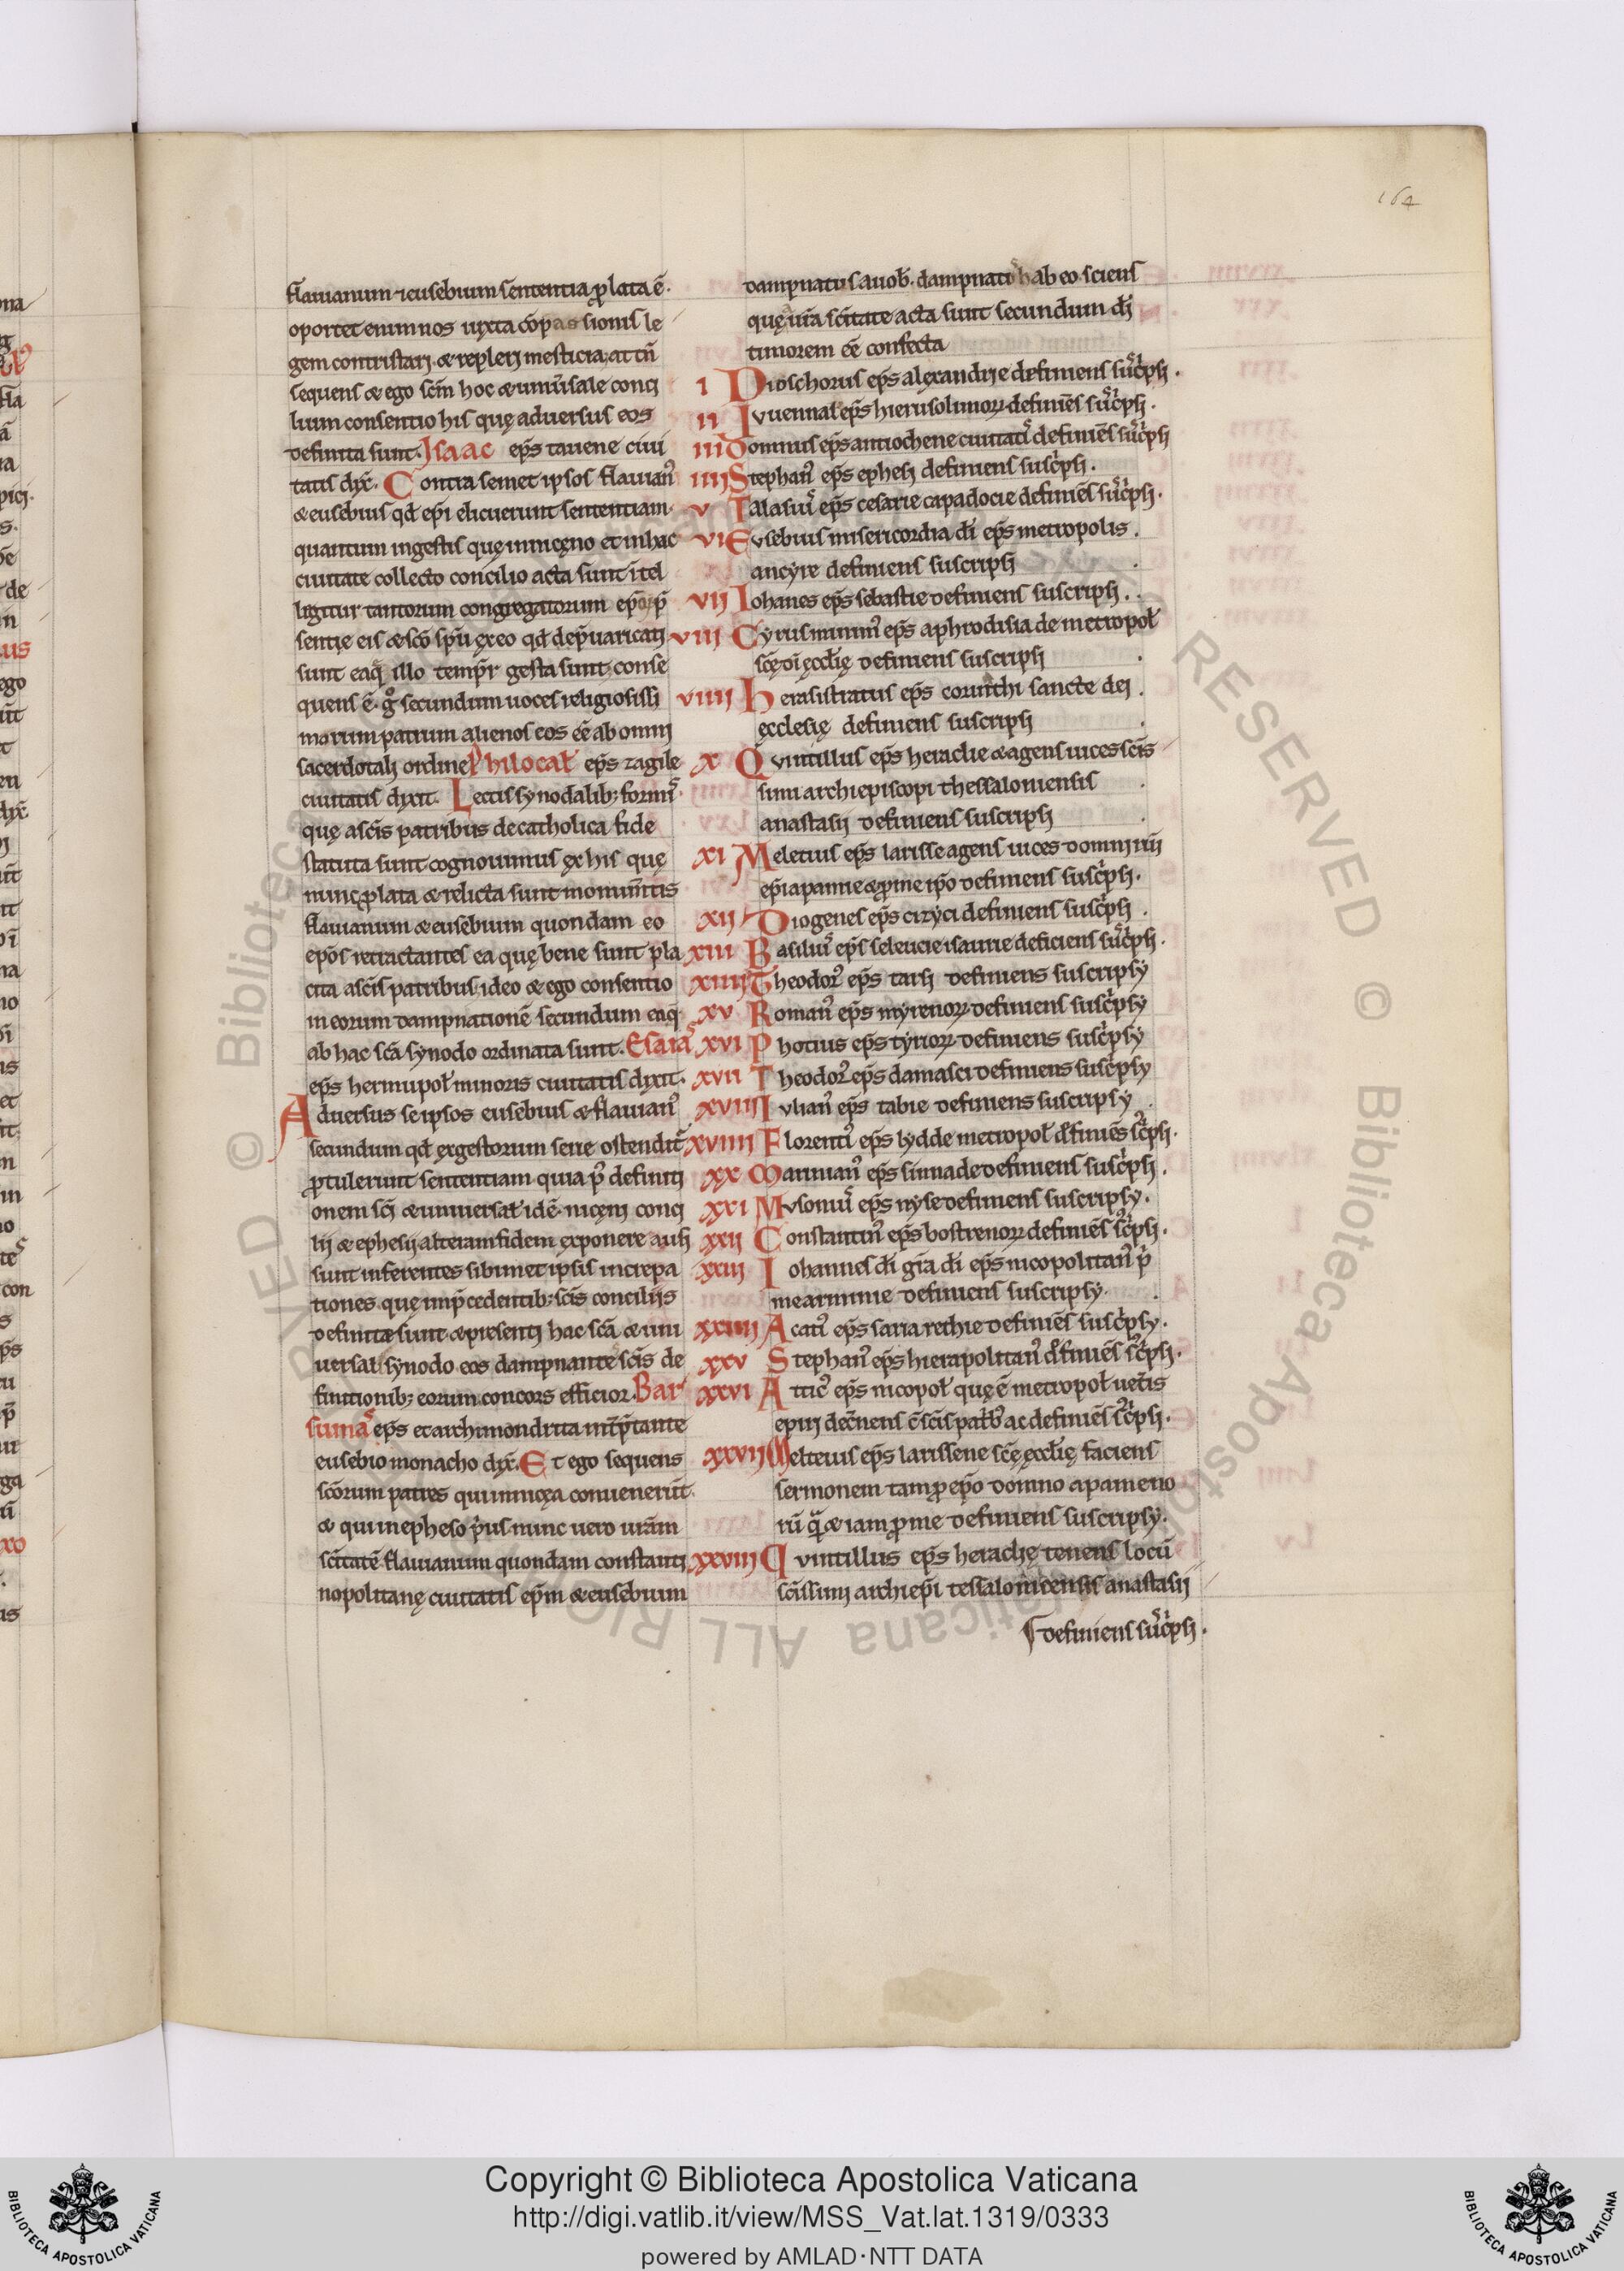 164
flauianum & eusebium sententia ꝓlata ē.
oportet enim nos iuxta cōpassionis le
gem contristari. & repleri mesticia. at tñ
sequens & ego scm̄ hoc & uniūsale conci
lium consentio his quę aduersus eos
definita sunt. Isaac eps̄ tauene ciui
tatis dix̄. Contra semet ipsos flauian᾽
& eusebius qd̄ ep̄i elicuerunt sententiam.
quantum in gestis quę in nicęno et in hac
ciuitate collecto concilio acta sunt itel
legitur tantorum congregatorum ep̄orꝫ p̄
sentię eis & sc̄o sp̄u ex eo qd̄ dep̄uaricati
sunt eaq̄ illo temp̄r gesta sunt. conse
quens ē. gͦ secundum uoces religiosissi
morum patrum alienos eos eē ab omni
sacerdotali ordine Philocal̄ eps̄ zagile
ciuitatis dixit. Lectis synodalib; formis
quę a scīs patribus de catholica fide
statuta sunt cognouimus ex his quę
nunc ꝓlata & relicta sunt monumtis
flauianum & eusebium quondam eo
ep̄os retractantes ea quę bene sunt pla
cita a scīs patribus ideo & ego consentio
in eorum dampnationē secundum eaq̄
ab hac scā synodo ordinata sunt. Esaias
eps̄ hermupol̄ minoris ciuitatis dixit.
Aduersus se ipsos eusebius & flauian᾽
secundum qd̄ ex gestorum serie ostendit᾽
ꝓtulerunt sententiam. quia p̄ definiti
onem scī & uniuersal̄ idē. nicęni conci
lii & ephesii alteram fidem exponere ausi
sunt inferentes sibimet ipsis increpa
tiones. quę in p̄cedentib; scīs conciliis
definitæ sunt. & presenti hac scā & uni
uersal̄ synodo eos dampnante scīs de
finitionib; eorum concors efficior. Bar
sumas eps̄ et archimondrita int̄p̄tante
eusebio monacho dix̄. Et ego sequens
sc̄orum patres qui in nicęa conuenerūt.
& qui in epheso p̄us nunc uero urām
sc̄itatē. flauianum quondam constanti
nopolitanę ciuitatis ep̄m & eusebium
dampnatus a uob̄. dampnatis hab eo. sciens
quę uīa sc̄itate acta sunt secundum dī
timorem eē confecta
I Dioschorus eps̄ alexandrie definiens suscrīpsi.
II Iuuenal eps̄ hierusolimorꝫ definiēs suscrīpsi.
III Domnus eps̄ antiochene ciuitatis definiēs suscrīpsi
IIII Stephan᾽ eps̄ ephesi definiens suscrīpsi.
V Talasius eps̄ cesarie capadocie definiēs suscrīpsi.
VI Eusebius misericordia dī eps̄ metropolis.
ancyre definiens suscripsi
VII Iohanes eps̄ sebastie definiens suscripsi.
VIII Cyrus minim᾽ eps̄ aphrodisia de metropol̄
scę dī ęccłię definiens suscripsi
VIIII Herasistratus eps̄ corinthi sancte dei.
ęcclesię definiens suscripsi
X Quintillus eps̄ heraclie & agens uices scīs
simi archiepiscopi thessaloniensis
anastasii definiens suscripsi
XI Meletius eps̄ larisse agens uices domni iui
ep̄i apamie & ꝓ me ip̄o definiens suscrīpsi.
XII Diogenes eps̄ cizyci definiens suscrīpsi.
XIII Basilius eps̄ seleucie isaurie deficiens suscrīpsi.
XIIII Theodor᾽ eps̄ tarsi definiens suscripsy
XV Roman᾽ eps̄ myrenorꝫ definiens suscrīpsy
XVI Photius eps̄ tyriorꝫ definiens suscrīpsy
XVII Theodor᾽ eps̄ damasci definiens suscrīpsy
XVIII Iulian᾽ eps̄ tabie definiens suscripsy.
XVIIII Florenti᾽ eps̄ lydde metropol̄ dēfiniēs scrīpsi.
XX Marinian᾽ eps̄ sinnade definiens suscrīpsi.
XXI Musonius eps̄ nyse definiens suscripsy.
XXII Constantin᾽ eps̄ bostrenorꝫ definiēs scrīpsi.
XXIII Iohannes dī gīa dī eps̄ nicopolitan᾽ p̄
me armenie definiens suscripsy.
XXIIII Acati᾽ eps̄ saria rethie definiēs suscrīpsy.
XXV Stephan᾽ eps̄ hierapolitan᾽ dēfiniēs scrīpsi.
XXVI Attic᾽ eps̄ nicopol̄ quę ē metropol̄ uet̄is
epiri dec̄nens c̄ scīs pat̄b᾽ ac definiēs scrīpsi.
XXVII Meletius eps̄ larissene scę ęccłię faciens
sermonem tam ꝓ ep̄o domno apameno
rū q̄ & iam ꝓ me definiens suscripsy.
XXVIII Quintillus eps̄ heraclię tenens locū
scīssimi archiep̄i tessalonicensis anastasii
definiens suscrīpsi.
Copyright © Biblioteca Apostolica Vaticana
http://digi.vatlib.it/view/MSS_Vat.lat.1319/0333
powered by AMLAD·NTT DATA